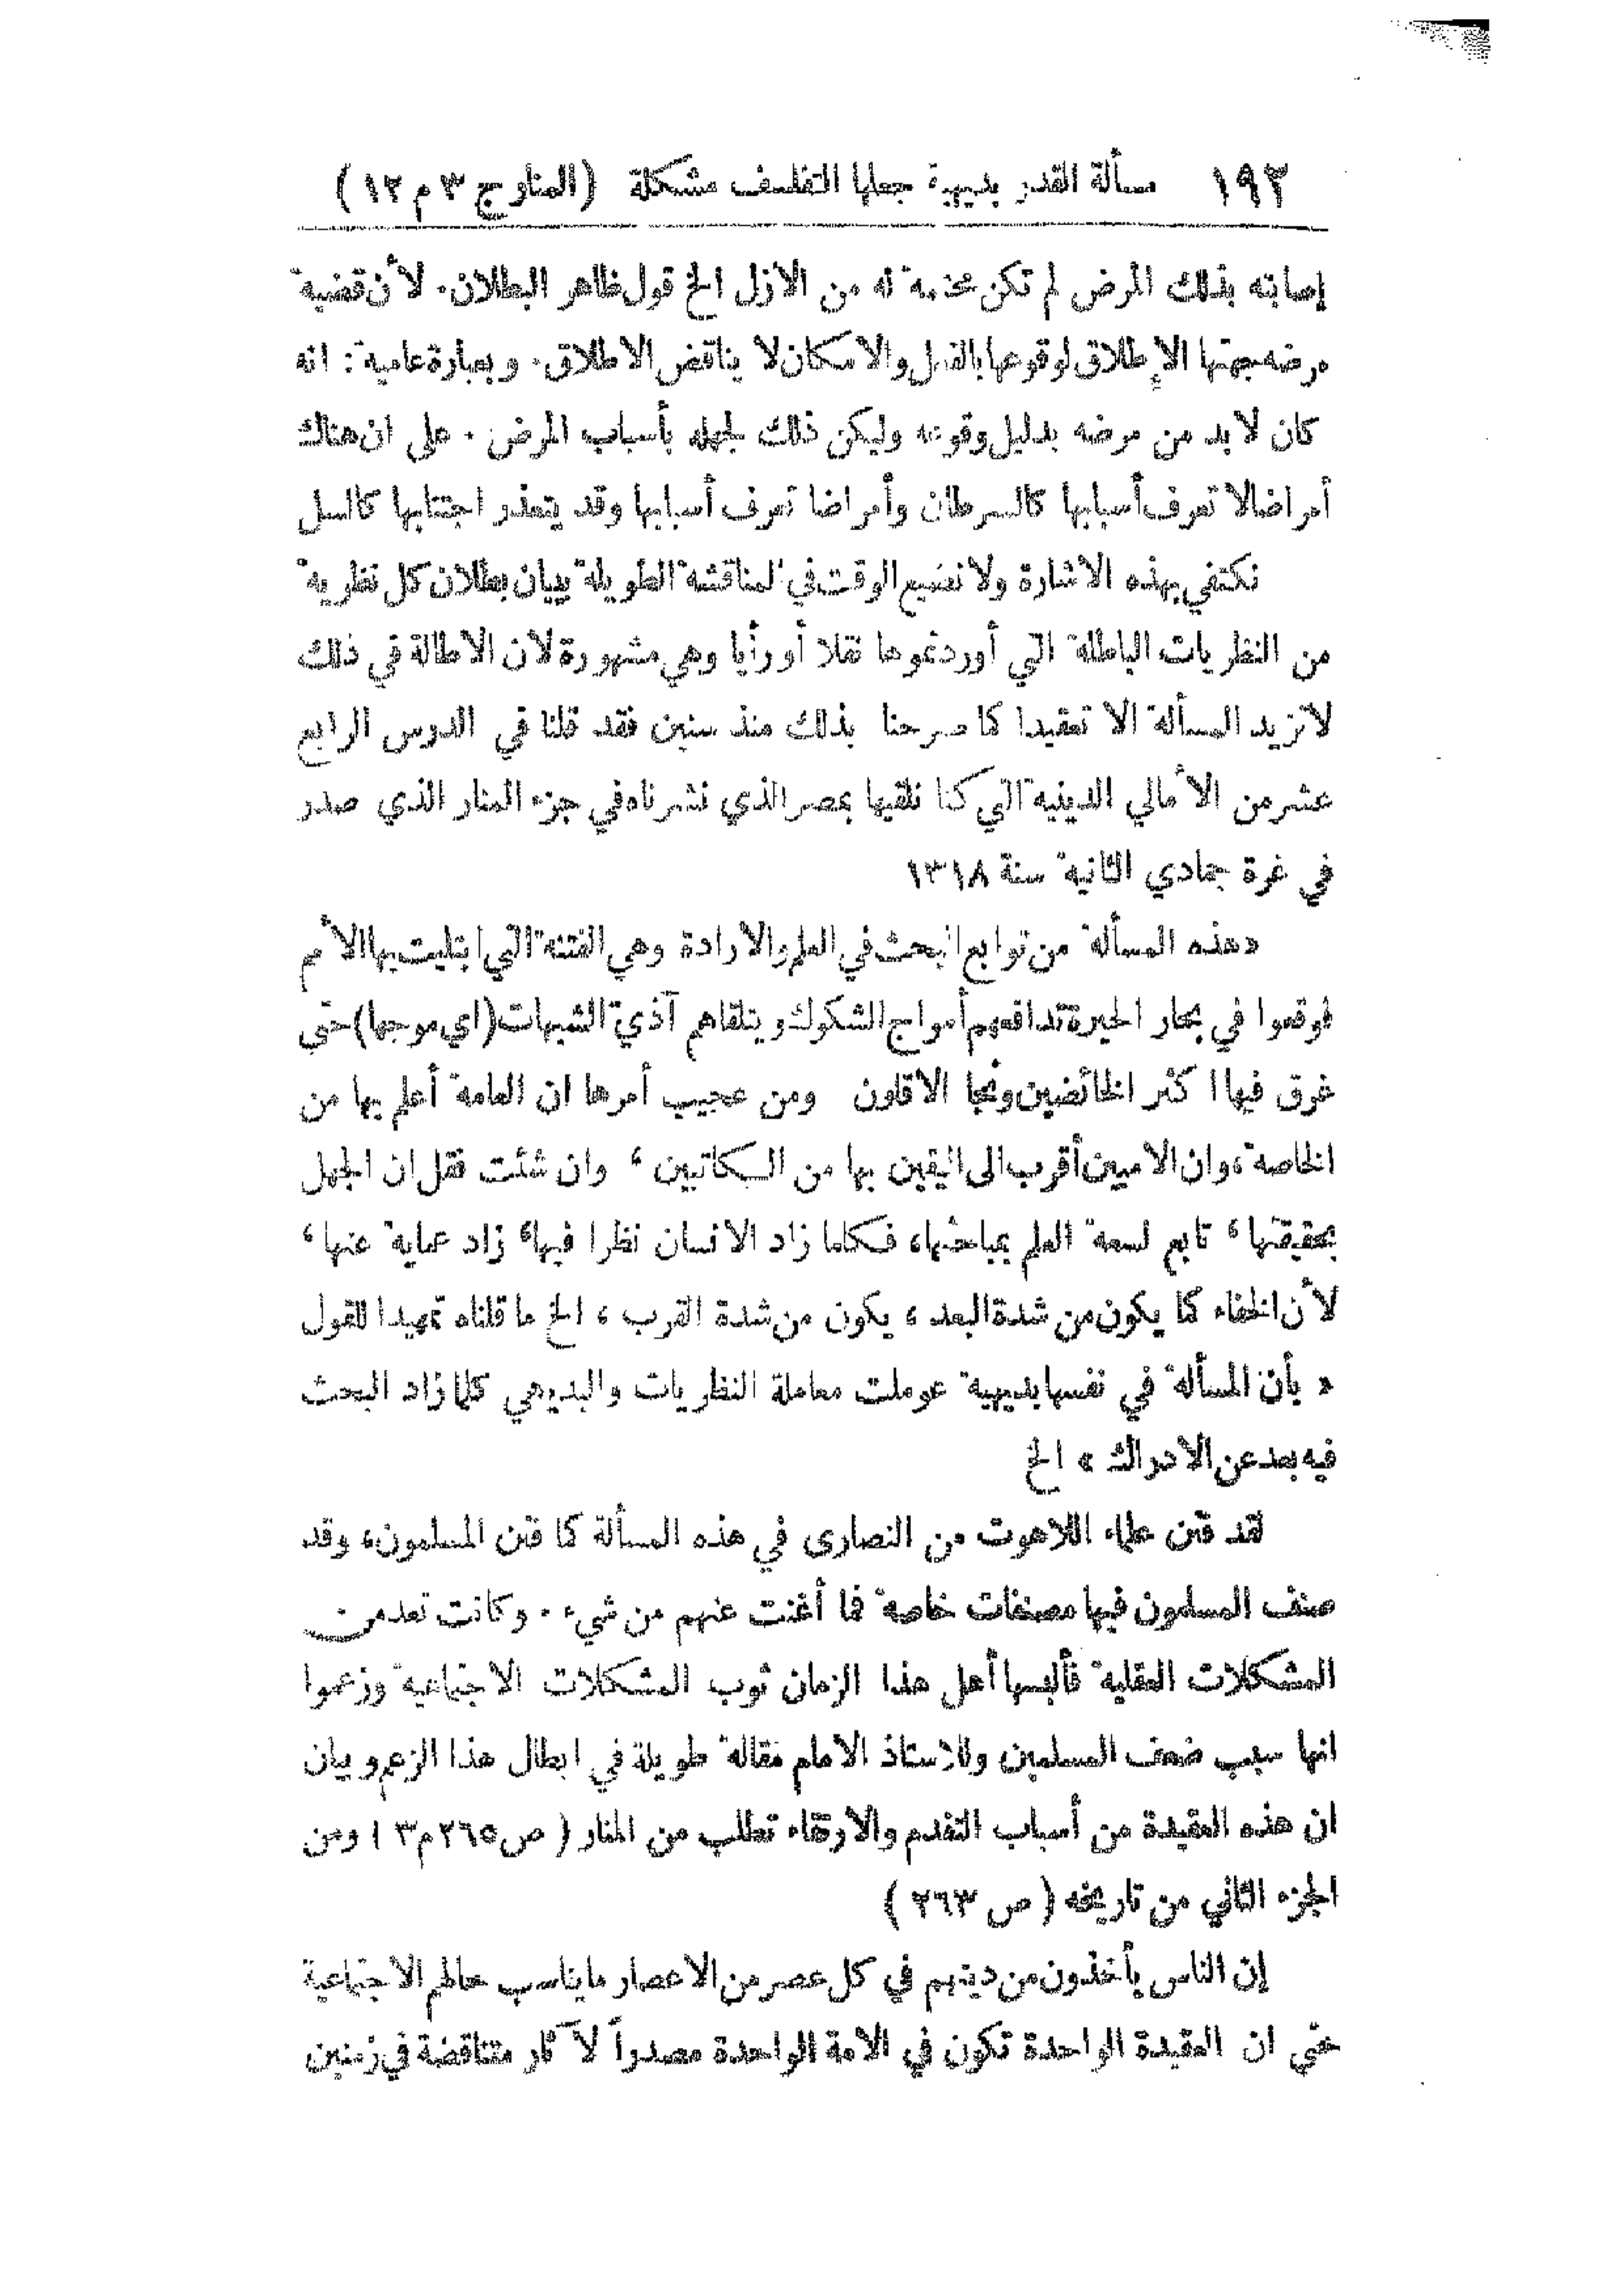 ١٩٢ مسألة القدر بديهية جعلها التفلسف مشكلة (المنار ج ٣ م ١٢)
إصابته بذلك المرض لم تكن محتمة له من الازل الخ قول ظاهر البطلان. لأن قضية
مرضه جهتها الإطلاق لوقوعها بالفعل والامكان لا يناقض الاطلاق. وبعبارة عامية: انه
كان لا بد من مرضه بدليل وقوعه وليكن ذلك لجهله بأسباب المرض. على ان هناك
أمراضا لا تعرف أسبابها كالسرطان وأمراضا تعرف أسبابها وقد يتعذر اجتنابها كالسل
نكتفي بهذه الاشارة ولا نضيع الوقت في المناقشة الطويلة ببيان بطلان كل نظرية
من النظريات الباطلة التي أوردتموها نقلا أو رأيا وهي مشهورة لان الاطالة في ذلك
لا تزيد المسألة الا تعقيدا كما صرحنا بذلك منذ سنين فقد قلنا في الدرس الرابع
عشر من الأمالي الدينية التي كنا نلقيها بمصر الذي نشرناه في جزء المنار الذي صدر
في غرة جمادي الثانية سنة ١٣١٨
«هذه المسألة من توابع البحث في العلم والارادة وهي الفتنة التي ابتليت بها الأمم
فوقعوا في بحار الحيرة تدافعهم أمواج الشكوك ويتلقاهم آذيّ الشبهات (اي موجها) حتى
غرق فيها اكثر الخائضين ونجا الاقلون ومن عجيب أمرها ان العامة أعلم بها من
الخاصة، وان الاميين أقرب الى اليقين بها من الكاتبين، وان شئت فقل ان الجهل
بحقيقتها، تابع لسعة العلم بمباحثها، فكلما زاد الانسان نظرا فيها، زاد عماية عنها،
لأن الخفاء كما يكون من شدة البعد، يكون من شدة القرب، الخ ما قلناه تمهيدا للقول
« بأن المسألة في نفسها بديهية عوملت معاملة النظريات والبديهي كلما زاد البحث
فيه بعد عن الادراك » الخ
لقد فتن علماء اللاهوت من النصارى في هذه المسألة كما فتن المسلمون، وقد
صنف المسلمون فيها مصنفات خاصة فما أغنت عنهم من شيء. وكانت تعد من
المشكلات العقلية فألبسها أهل هذا الزمان ثوب المشكلات الاجتماعية وزعموا
انها سبب ضعف المسلمين وللاستاذ الامام مقالة طويلة في ابطال هذا الزعم وبيان
ان هذه العقيدة من أسباب التقدم والارتقاء تطلب من المنار (ص ٢٦٥ م ٣) ومن
الجزء الثاني من تاريخه (ص ٢٦٣)
إن الناس يأخذون من دينهم في كل عصر من الاعصار ما يناسب حالهم الاجتماعية
حتى ان العقيدة الواحدة تكون في الامة الواحدة مصدراً لآثار متناقضة في زمنين